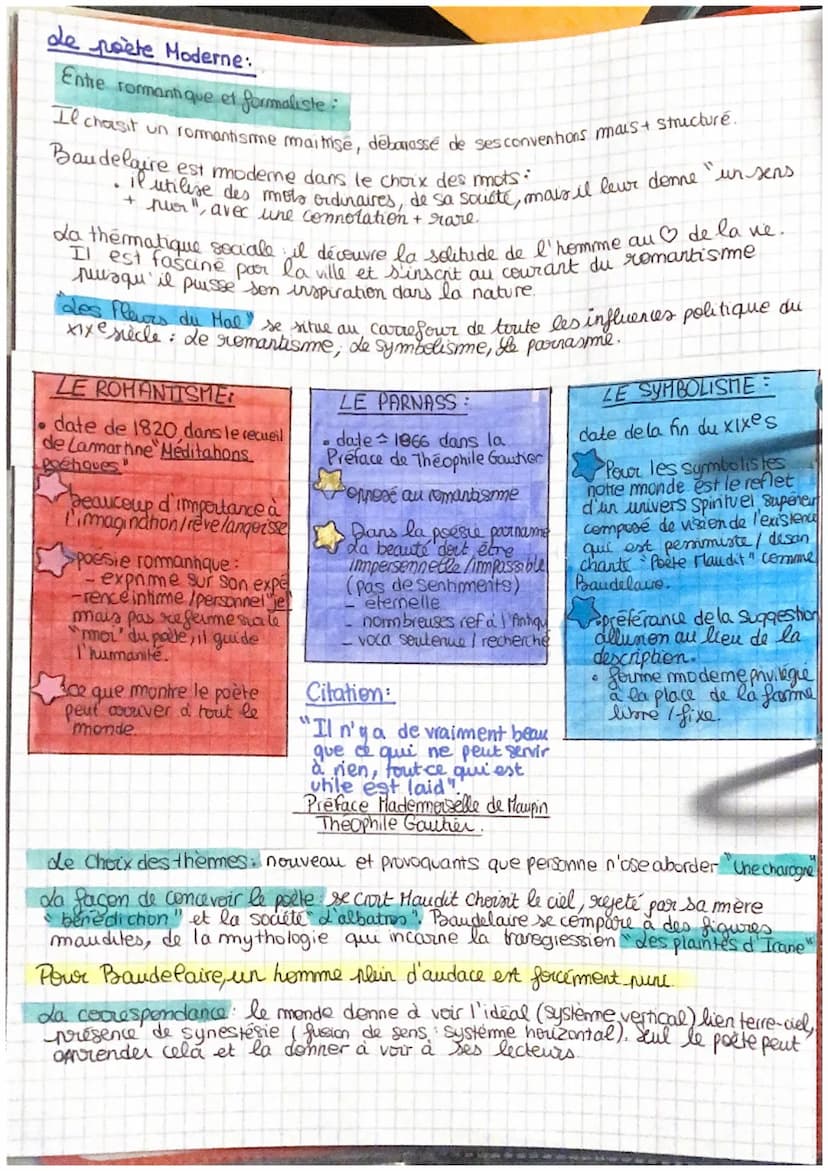 Le poète Moderne:
Entre romantique et formaliste :
Il choisit un romantisme maitrisé, débarassé de ses conventions mais + structuré.
Baudelaire est moderne dans le choix des mots :
• il utilise des mots ordinaires, de sa société, mais il leur donne "un sens
+ pur", avec une connotation + rare.
La thématique sociale : il découvre la solitude de l'homme au ♡ de la vie.
Il est fasciné par la ville et s'inscrit au courant du romantisme
puisqu'il puisse son inspiration dans la nature.
"Les Fleurs du Mal" se situe au carrefour de toute les influences politique du
XIXe siècle : Le romantisme, Le symbolisme, Le parnasme.
LE ROMANTISME:
• date de 1820, dans le recueil
de Lamartine "Méditations
poétiques"
beaucoup d'importance à
l'imagination/rêve/angoisse
poésie romantique :
- exprime sur son expé
-rence intime /personnel "je"
mais pas
"moi" du poète, il guide
l'humanité.
ce que montre le poète
peut arriver à tout le
monde.
LE PARNASS :
• date ≃ 1866 dans la
Préface de Théophile Gautier
opposé au romantisme
Dans la poésie parname
La beauté doit être
impersonnelle/impassible
(pas de sentiments)
- éternelle
- nombreuses ref à l'Antiqu
- voca soutenue / recherché
Citation:
"Il n'y a de vraiment beau
que ce qui ne peut servir
à rien, tout ce qui est
utile est laid".
Préface Mademoiselle de Maupin
Théophile Gautier.
LE SYMBOLISME :
date de la fin du XIXes
Pour les symbolistes
notre monde est le reflet
d'un univers spirituel supérieur
composé de vision de l'existence
qui est pessimiste / désen
chanté "Poète Maudit" comme
Baudelaire.
préférance de la suggestion
allusion au lieu de la
description.
• forme moderne privilégié
à la place de la forme
libre / fixe.
Le choix des thèmes : nouveau et provoquants que personne n'ose aborder "Une charogne"
La façon de concevoir le poète : se croit Maudit choisit le ciel, rejeté par sa mère
"bénédiction" et la société "d'albatros". Baudelaire se compare à des figures
maudites, de la mythologie qui incarne la transgression "Les plaintes d'Icare"
Pour Baudelaire, un homme plein d'audace est forcément puni.
La correspondance : le monde donne à voir l'idéal (système vertical) lien terre-ciel,
présence de synestésie (fusion de sens : système horizontal). Seul le poète peut
apprender celà et la donner à voir à ses lecteurs.